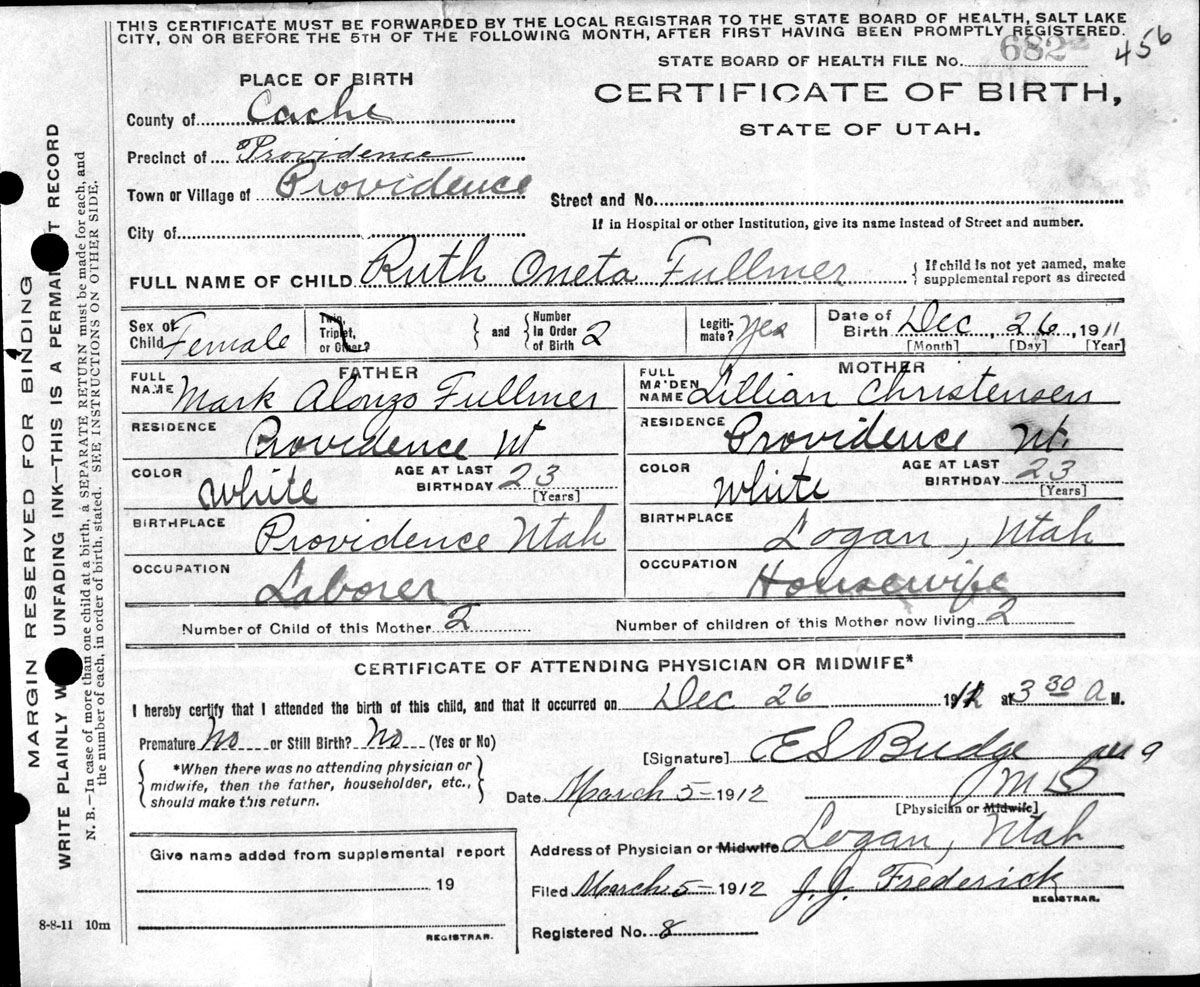 THIS CERTIFICATE MUST BE FORWARDED BY THE LOCAL REGISTRAR TO THE STATE BOARD OF HEALTH, SALT LAKE
CITY, ON OR BEFORE THE 5TH OF THE FOLLOWING MONTH, AFTER FIRST HAVING BEEN PROMPTLY REGISTERED.
STATE BOARD OF HEALTH FILE No. 682 456
PLACE OF BIRTH
CERTIFICATE OF BIRTH,
STATE OF UTAH.
County of Cache
Precinct of Providence
Town or Village of Providence
Street and No.
If in Hospital or other Institution, give its name Instead of Street and number.
City of
FULL NAME OF CHILD Ruth Oneta Fullmer { If child is not yet named, make
supplemental report as directed
Sex of Child Female
Twin, Triplet, or Other?
} and { Number In Order of Birth 2
Legiti-mate? Yes
Date of Birth Dec, 26, 1911
[Month] [Day] [Year]
FATHER
FULL NAME Mark Alonzo Fullmer
RESIDENCE Providence Ut
COLOR White AGE AT LAST BIRTHDAY 23 [Years]
BIRTHPLACE Providence Utah
OCCUPATION Laborer
MOTHER
FULL MAIDEN NAME Lillian Christensen
RESIDENCE Providence Ut.
COLOR White AGE AT LAST BIRTHDAY 23 [Years]
BIRTHPLACE Logan, Utah
OCCUPATION Housewife
Number of Child of this Mother 2 Number of children of this Mother now living 2
CERTIFICATE OF ATTENDING PHYSICIAN OR MIDWIFE*
I hereby certify that I attended the birth of this child, and that it occurred on Dec 26 1911 at 3 30 A M.
Premature No or Still Birth? No (Yes or No)
[Signature] E S Budge
*When there was no attending physician or
midwife, then the father, householder, etc.,
should make this return.
Date March 5 - 1912 M D
[Physician or Midwife]
Address of Physician or Midwife Logan, Utah
Filed March 5 - 1912 J. J. Frederick
REGISTRAR.
Registered No. 8
Give name added from supplemental report
19
REGISTRAR.
8-8-11 10m
MARGIN RESERVED FOR BINDING
WRITE PLAINLY W UNFADING INK—THIS IS A PERMA T RECORD
N. B.—In case of more than one child at a birth, a SEPARATE RETURN must be made for each, and
the number of each, in order of birth, stated. SEE INSTRUCTIONS ON OTHER SIDE.